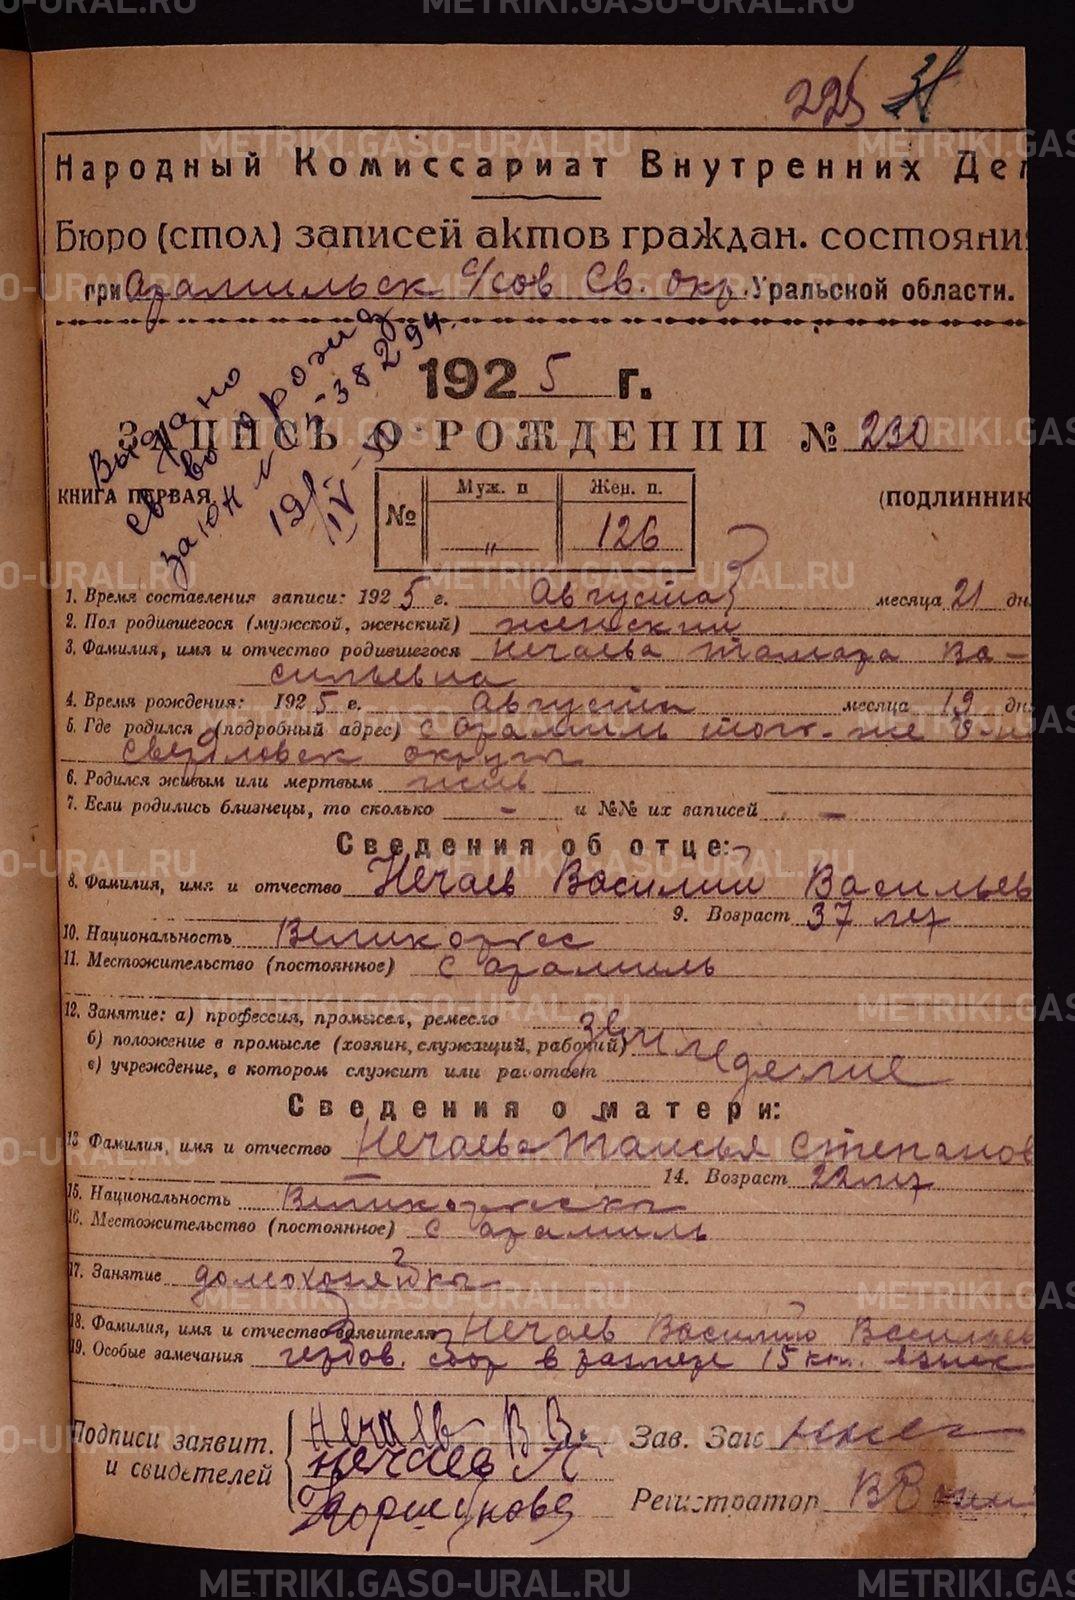 225 31
Народный Комиссариат Внутренних Дел
Бюро (стол) записей актов граждан. состояния
при Арамильск с/сов Св. окр. Уральской области.
1925 г.
Выдано
св-во о рожд
за № 38294
ЗАПИСЬ О РОЖДЕНИИ № 230
КНИГА ПЕРВАЯ
(ПОДЛИННИК
№ Муж. п Жен. п.
„ 126
1. Время составления записи: 1925 г. Августа месяца 21 дн
2. Пол родившегося (мужской, женский) женский
3. Фамилия, имя и отчество родившегося Нечаева Тамара Ва-
сильевна
4. Время рождения: 1925 г. Августа месяца 19 дн
5. Где родился (подробный адрес) с Арамиль того-же
Свердловск округа
6. Родился живым или мертвым жив
7. Если родились близнецы, то сколько - и №№ их записей -
Сведения об отце:
8. Фамилия, имя и отчество Нечаев Василий Васильев
9. Возраст 37 лет
10. Национальность Великорус
11. Местожительство (постоянное) с Арамиль
12. Занятие: а) профессия, промысел, ремесло
б) положение в промысле (хозяин, служащий, рабочий)
в) учреждение, в котором служит или работает
земледелие
Сведения о матери:
13. Фамилия, имя и отчество Нечаева Таисья Степанов
14. Возраст 22 лет
15. Национальность Великоруска
16. Местожительство (постоянное) с Арамиль
17. Занятие домохозяйка
18. Фамилия, имя и отчество заявителя Нечаев Василий Васильев
19. Особые замечания гербов. сбор в размере 15 коп. взыск
Подписи заявит.
и свидетелей
Нечаев В В.
Нечаев
Зав. Заг
Регистратор
METRIKI.GASO-URAL.RU